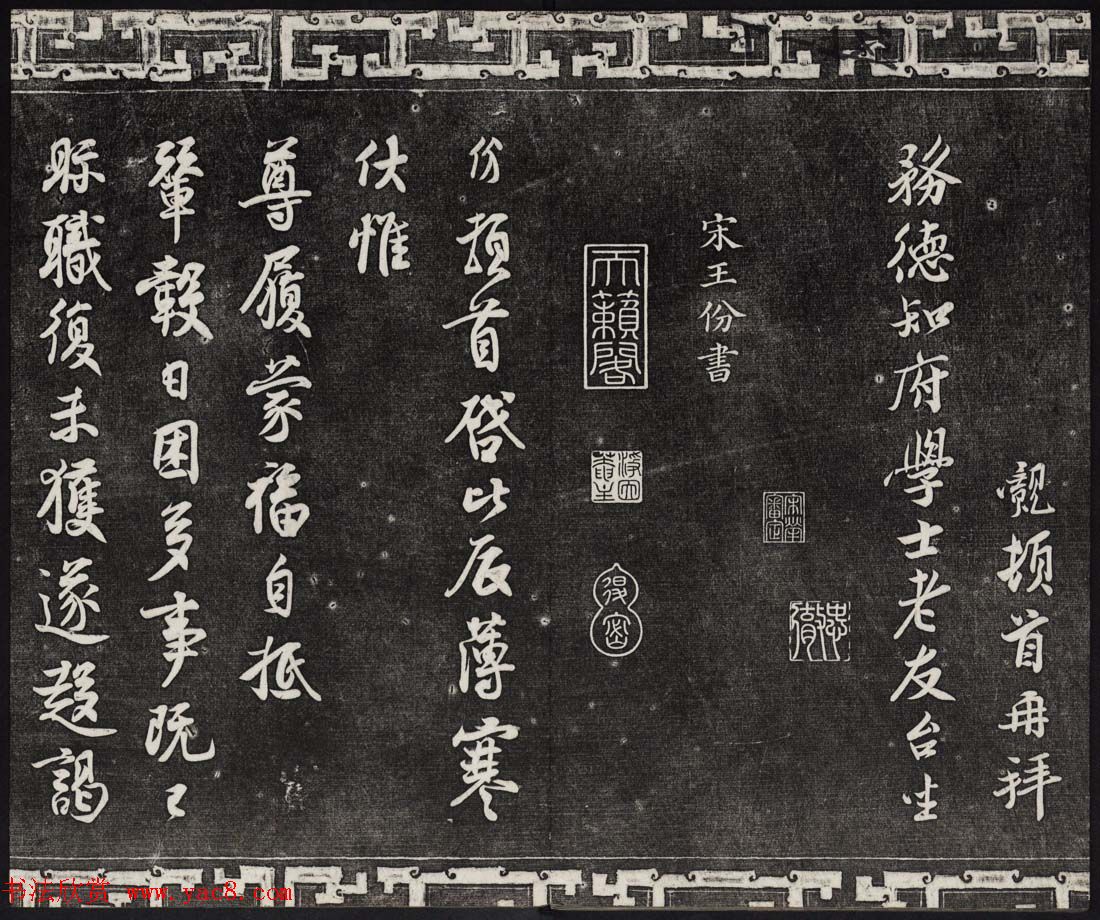 頓首再拜
務德知府學士老友台坐
宋王份書
宋犖審定
忠徹
天籟閣
份頓首啓比辰薄寒
伏惟
尊履蒙福自抵
輦轂日困多事既〻
眎職復未獲遂趍謁
书法欣赏 www.yac8.com